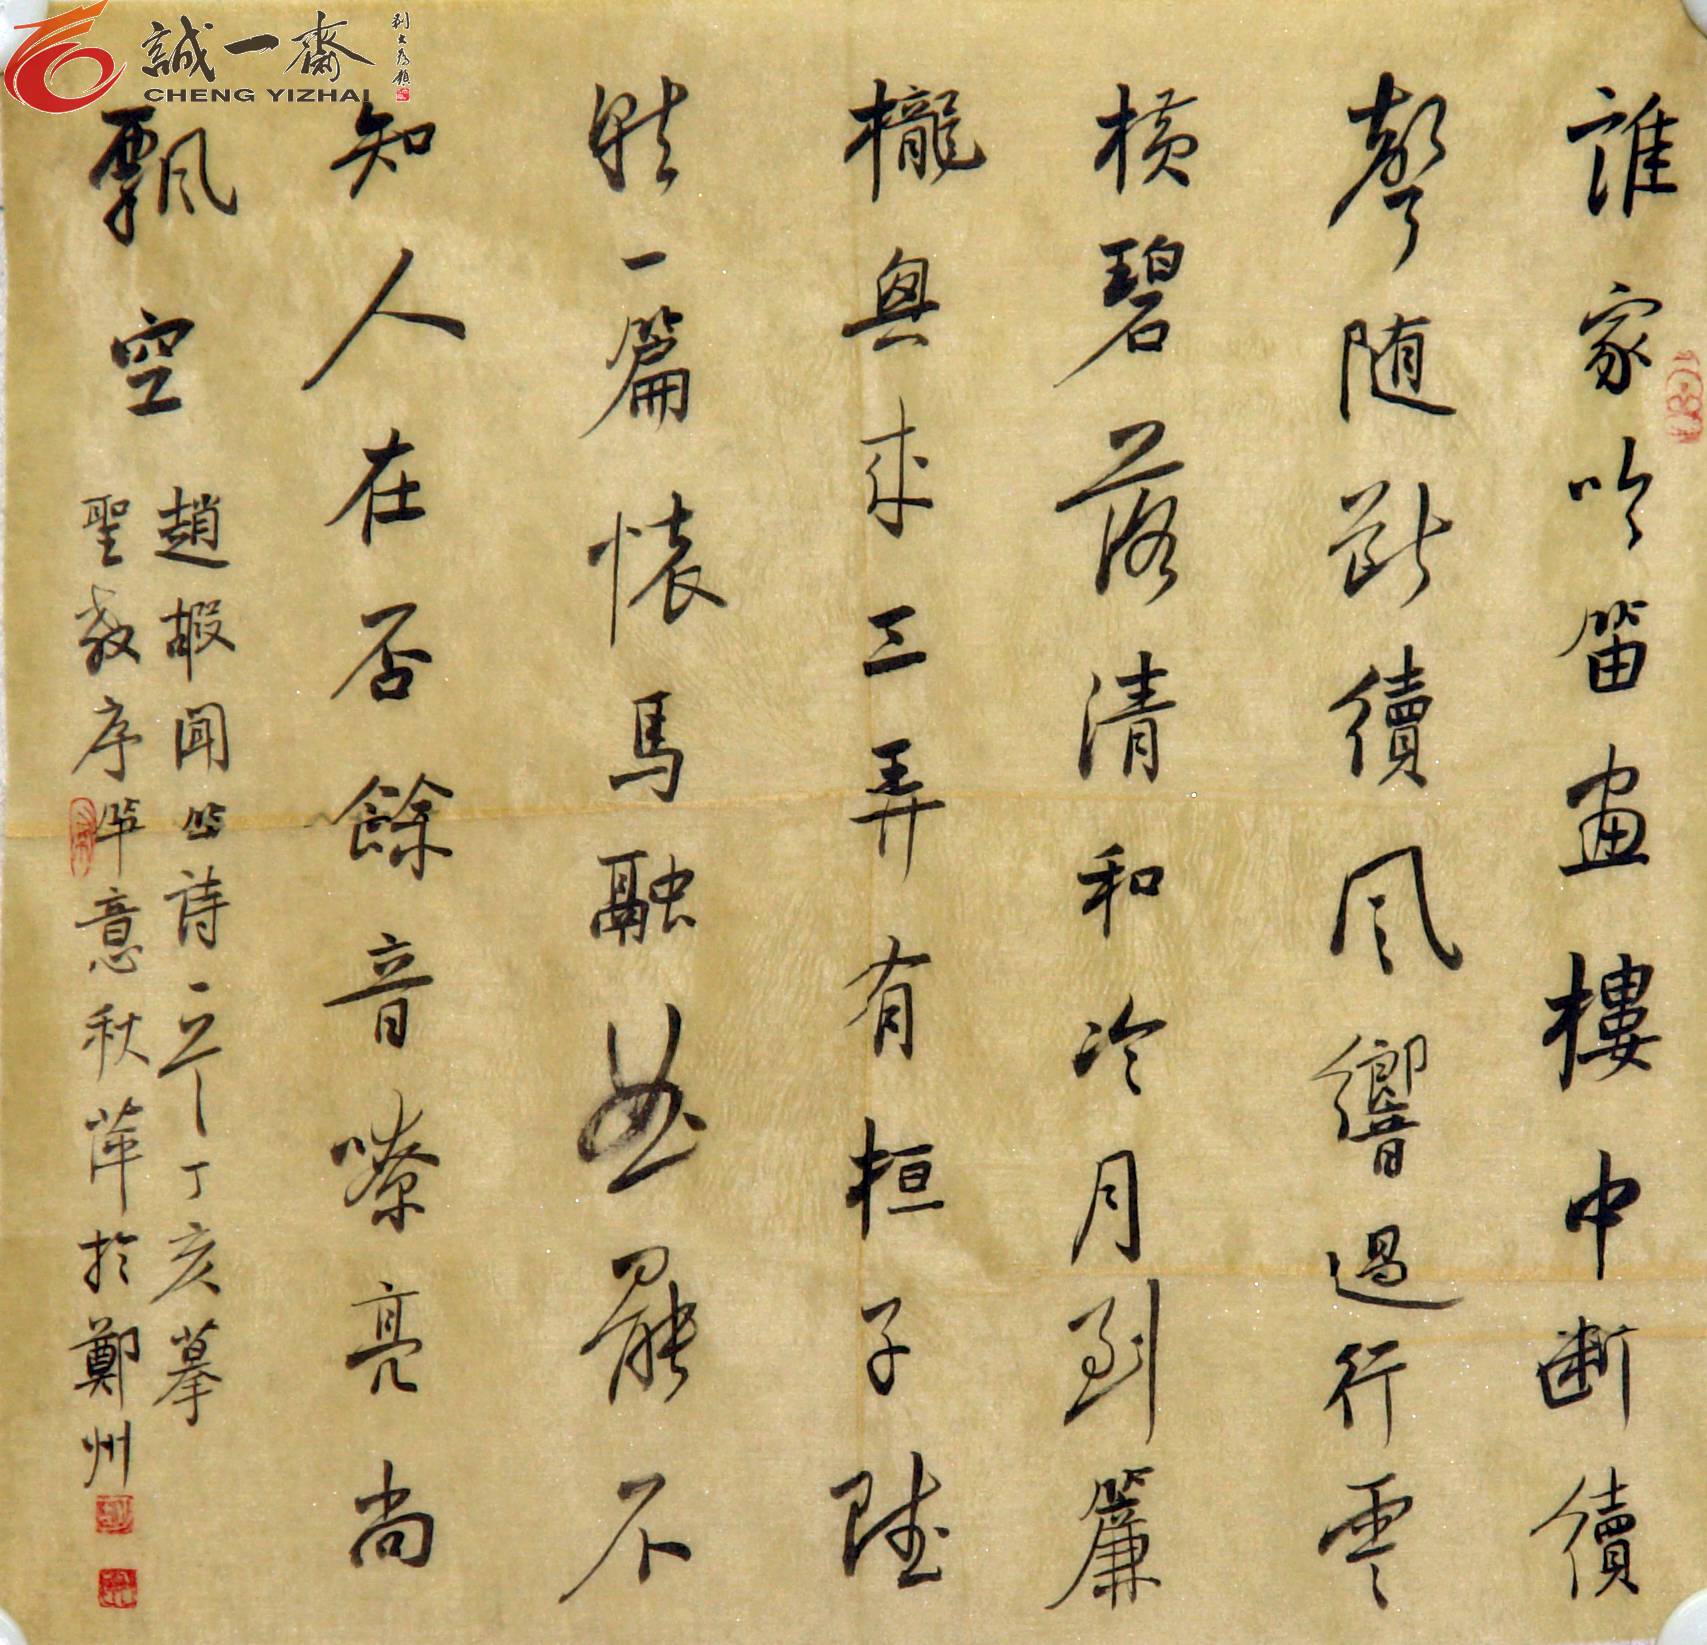 誠一齋
CHENG YIZHAI
刘大为题
誰家吹笛画樓中断續
聲随斷續风響遏行雲
橫碧落清和冷月到簾
櫳興来三弄有桓子賦
就一篇懷馬融曲罷不
知人在否餘音嘹亮尚
飄空
趙嘏聞笛詩一首丁亥摹
聖教序筆意秋萍於鄭州